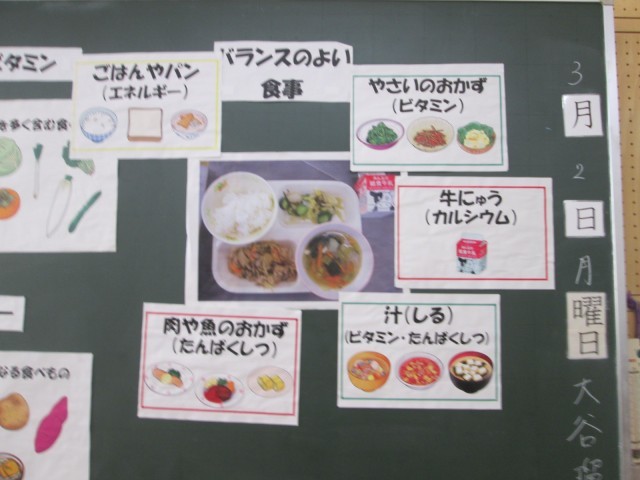 タミン
ごはんやパン
(エネルギー)
バランスのよい
食事
やさいのおかず
(ビタミン)
を多く含む食
牛にゅう
(カルシウム)
肉や魚のおかず
(たんぱくしつ)
汁(しる)
(ビタミン・たんぱくしつ)
ー
なる食べもの
3
月
2
日
月
曜
日
大谷